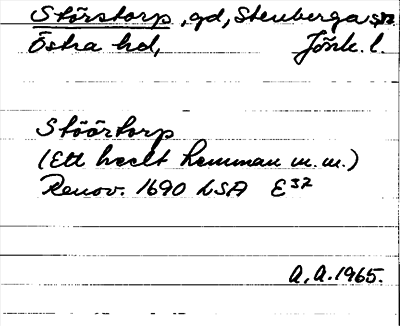 Störstorp, gd, Stenberga sn
Östra hd, Jönk. l.
Stöörtorp
(Ett heelt hemman m.m.)
Renov. 1690 LSA E³²
A.A. 1965.